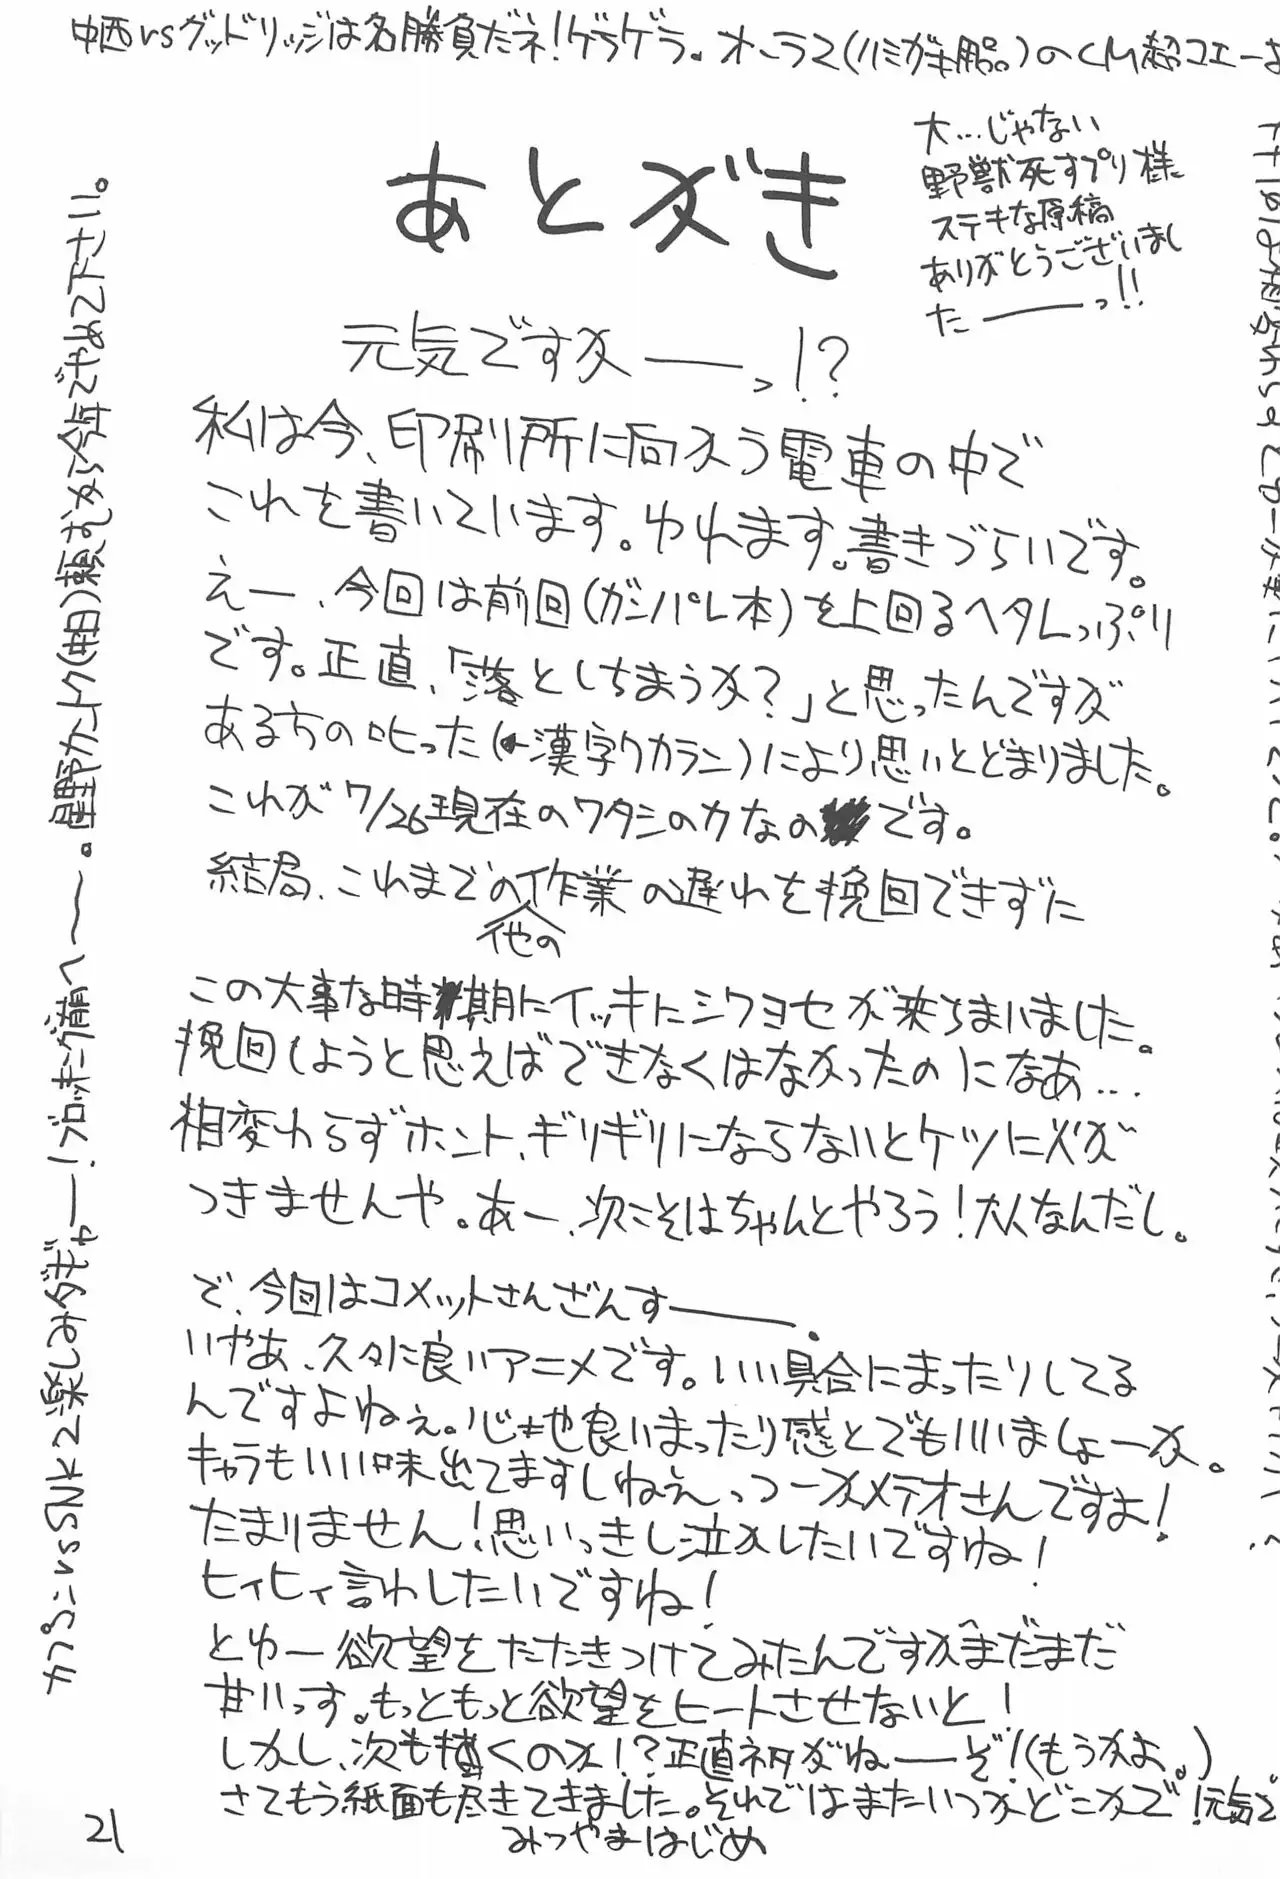 中西vsグッドリッジは名勝負だネ!ゲラゲラ。オーラ2(ハミガキ粉。)のCM超コエーよ
大…じゃない
野獣死すプリ様
ステキな原稿
ありがとうございまし
たーーっ!!
あとがき
元気ですかーーっ!?
私は今、印刷所に向かう電車の中で
これを書いています。ゆれます。書きづらいです。
えー、今回は前回(ガンパレ本)を上回るヘタレっぷり
です。正直、「落としちまうか?」と思ったんですが
ある方の叱った(←漢字ワカラン)により思いとどまりました。
これが7/26現在のワタシの力なのです。
結局、これまでの他の作業の遅れを挽回できずに
この大事な時期にイッキにシワヨセが来ちまいました。
挽回しようと思えばできなくはなかったのになあ…
相変わらずホント、ギリギリにならないとケツに火が
つきませんや。あー、次こそはちゃんとやろう!大人なんだし。
で、今回はコメットさんざんすーー。
いやあ、久々に良いアニメです。いい具合にまったりしてる
んですよねぇ。心地良いまったり感とでもいいましょーか。
キャラもいい味出てますしねぇ、っつーかメテオさんですよ!
たまりません!思いっきし泣かしたいですね!
ヒィヒィ言わしたいですね!
とゆー欲望をたたきつけてみたんですがまだまだ
甘いっす。もっともっと欲望をヒートさせないと!
しかし、次も描くのか!?正直ネタがねーーぞ!(もうかよ。)
さてもう紙面も尽きてきました。それではまたいつかどこかで!元気で
みつやまはじめ
カプコンvsSNK2楽しみダギャー!ブロッキング萌へ〜〜。
頼むから今年でやめて下さい。
21